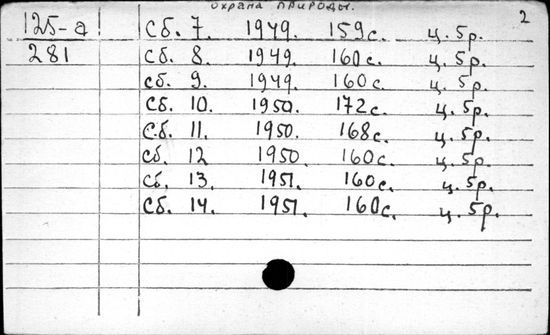 Охрана природы.
2
125-а
281
Сб. 7. 1949. 159с. ц. 5р.
Сб. 8. 1949. 160с. ц. 5р.
Сб. 9. 1949. 160с. ц. 5р.
Сб. 10. 1950. 172с. ц. 5р.
Сб. 11. 1950. 168с. ц. 5р.
Сб. 12 1950. 160с. ц. 5р.
Сб. 13. 1951. 160с. ц. 5р.
Сб. 14. 1951. 160с. ц. 5р.